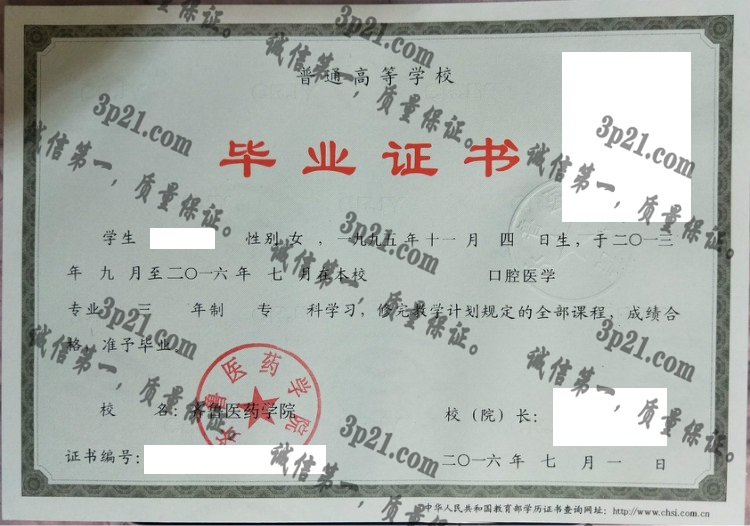 普通高等学校
毕业证书
学生 性别 女 ，一九九五 年 十一 月 四 日生，于二〇一三
年 九 月至二〇一六 年 七 月在本校 口腔医学
专业 三 年制 专 科学习，修完教学计划规定的全部课程，成绩合
格，准予毕业.
校 名：齐鲁医药学院
校（院）长：
证书编号：
二〇一六 年 七 月 一 日
中华人民共和国教育部学历证书查询网址：http://www.chsi.com.cn
齐鲁医药学院
3p21.com
诚信第一，质量保证。
3p21.com
诚信第一，质量保证。
3p21.com
诚信第一，质量保证。
3p21.com
诚信第一，质量保证。
3p21.com
诚信第一，质量保证。
3p21.com
诚信第一，质量保证。
3p21.com
诚信第一，质量保证。